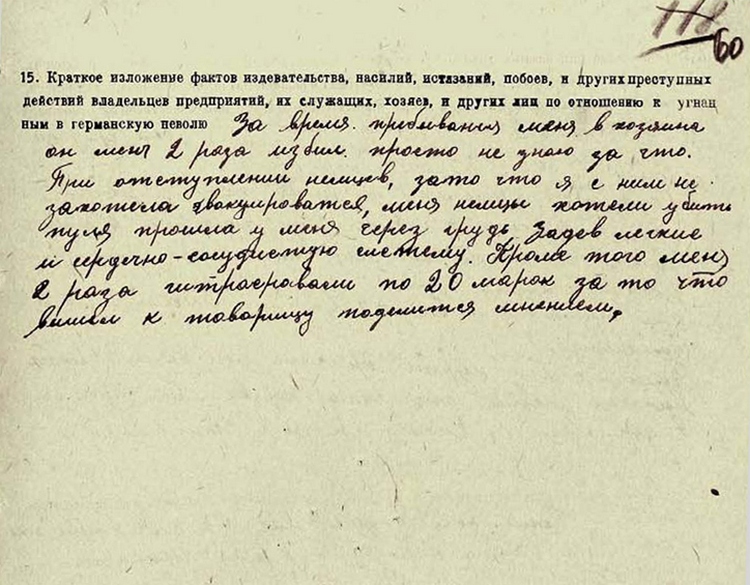 118
60
15. Краткое изложение фактов издевательства, насилий, истязаний, побоев, и других преступных
действий владельцев предприятий, их служащих, хозяев, и других лиц по отношению к угнан
ным в германскую неволю За время пребывания меня в хозяина
он меня 2 раза избил. просто не знаю за что.
При отступлении немцев, зато что я с ним не
захотела эвакуироватся, меня немцы хотели убить
пуля прошла у меня через грудь, задев легкие
и сердечно-сосудистую систему. Кроме того меня
2 раза штрафовали по 20 марок за то что
вышел к товарищу поделится мнением.